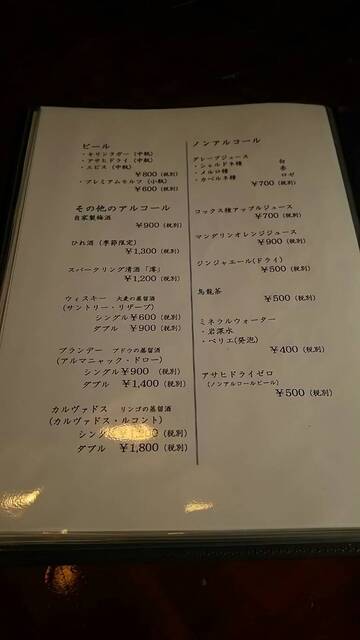 ビール
・キリンラガー (中瓶)
・アサヒドライ (中瓶)
・エビス (中瓶)
￥800 (税別)
・プレミアムモルツ (小瓶)
￥600 (税別)
その他のアルコール
自家製梅酒
￥900 (税別)
ひれ酒 (季節限定)
￥1,300 (税別)
スパークリング清酒「澪」
￥1,200 (税別)
ウィスキー 大麦の蒸留酒
(サントリー・リザーブ)
シングル ￥600 (税別)
ダブル ￥900 (税別)
ブランデー ブドウの蒸留酒
(アルマニャック・ドロー)
シングル ￥900 (税別)
ダブル ￥1,400 (税別)
カルヴァドス リンゴの蒸留酒
(カルヴァドス・ルコント)
シング (税別)
ダブル ￥1,800 (税別)
ノンアルコール
グレープジュース
・シャルドネ種 白
・メルロ種 赤
・カベルネ種 ロゼ
￥700 (税別)
コックス種アップルジュース
￥700 (税別)
マンダリンオレンジジュース
￥900 (税別)
ジンジャエール(ドライ)
￥500 (税別)
烏龍茶
￥500 (税別)
ミネラルウォーター
・岩深水
・ペリエ(発泡)
￥400 (税別)
アサヒドライゼロ
(ノンアルコールビール)
￥500 (税別)